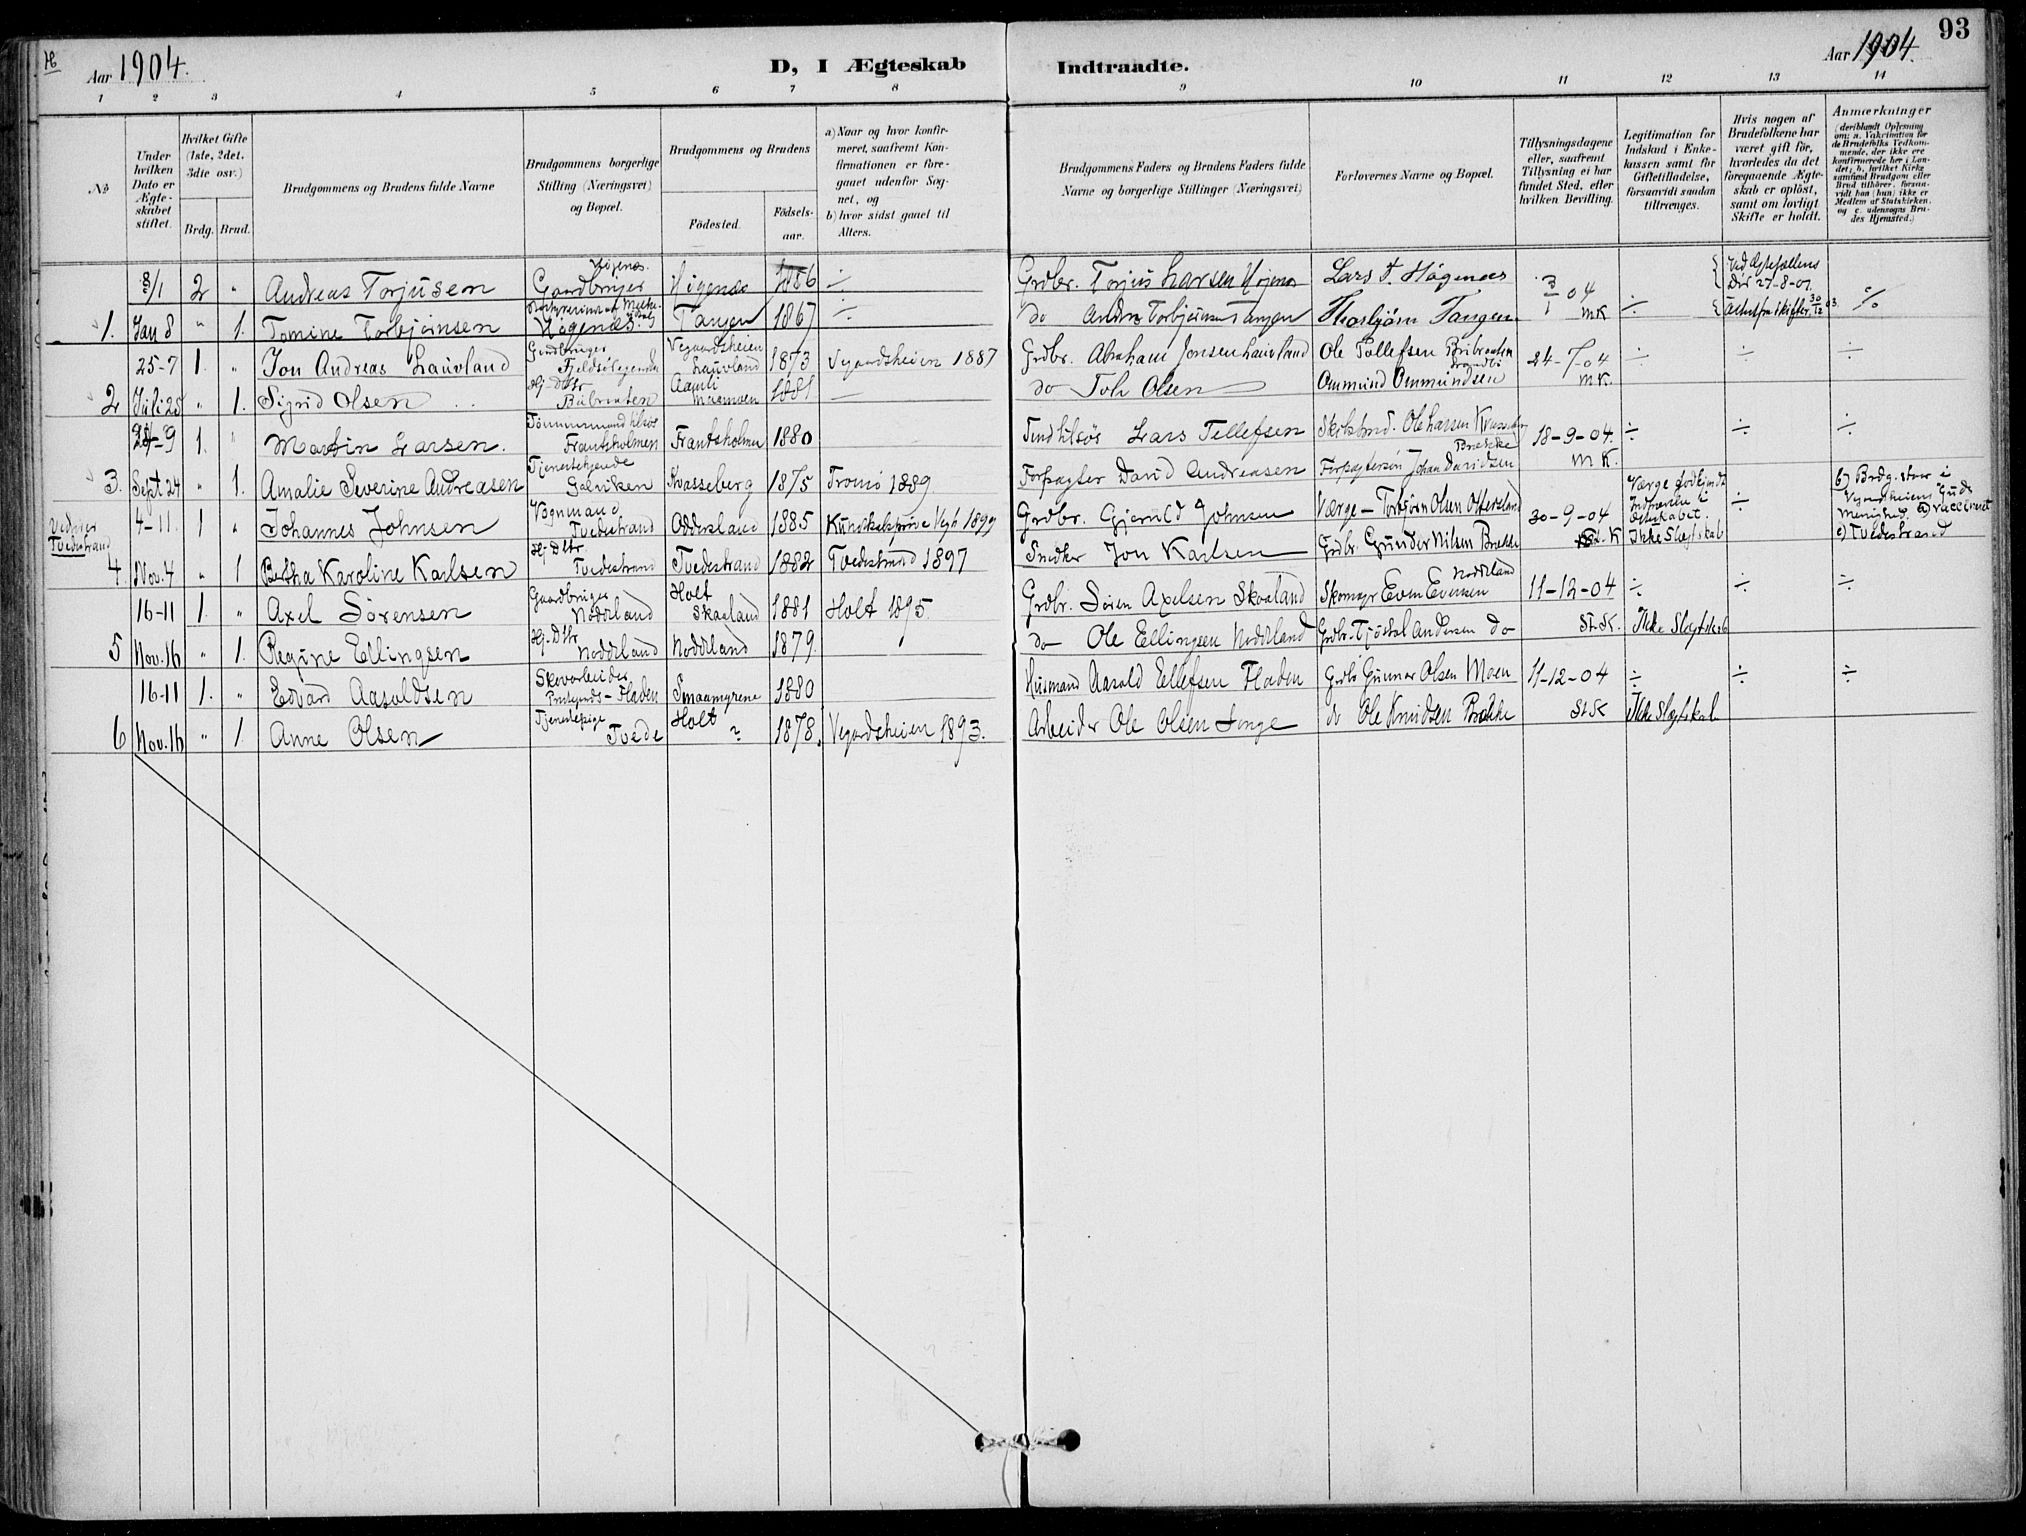 H
Aar 1904.
D, I Ægteskab
Indtraadte.
Aar 1904.
93
1 2 3 4 5 6 7 8 9 10 11 12 13 14
No
Under hvilken Dato er Ægteskabet stiftet.
Hvilket Gifte (1ste, 2det, 3die osv.)
Brdg. Brud.
Brudgommens og Brudens fulde Navne
Brudgommens borgerlige Stilling (Næringsvei) og Bopæl.
Brudgommens og Brudens
Födested.
Födselsaar.
a) Naar og hvor konfirmeret, saafremt Konfirmationen er foregaaet udenfor Sognet, og
b) hvor sidst gaaet til Alters.
Brudgommens Faders og Brudens Faders fulde Navne og borgerlige Stillinger (Næringsvei)
Forlovernes Navne og Bopæl.
Tillysningsdagene eller, saafremt Tillysning ei har fundet Sted, efter hvilken Bevilling.
Legitimation for Indskud i Enkekassen samt for Giftetilladelse, forsaavidt saadan tiltrænges.
Hvis nogen af Brudefolkene har været gift för, hvorledes da det foregaaende Ægteskab er oplöst, samt om lovligt Skifte er holdt.
Anmærkninger
(deriblandt Oplysning om: a. Vakcination for de Brudefolks Vedkommende, der ikke ere konfirmerede her i Landet; b. hvilket Kirkesamfund Brudgom eller Brud tilhører, forsaavidt han (hun) ikke er Medlem af Statskirken, og c. udensogns Brudes Hjemsted.)
8/1 2 " Andreas Torjusen Gaardbruger Høgenæs 1886 ÷ Grdbr. Torjus Larsen Lars T. Høgenæs 3/1 04 Ved Ægtefællens Död 27-8-01
1. Jan 8 " 1. Tomine Torbjørnsen Høgenæs Tangen 1867 ÷ do Torbjørnsen Tangen Thorbjørn Tangen MK ÷ 30/12 03
25-7 1. " Jon Andreas Lauvland Gaardbruger Vegaardsheien Lauvland 1873 Vegaardsheien 1887 Grdbr. Abraham Jensen Lauvland Ole Tellefsen 24-7-04 ÷ ÷ ÷
2 Juli 25 " 1. Sigrid Olsen Hj-Dttr Aamli 1881 do Olsen Ommund Ommundsen MK.
24-9 1. " Martin Larsen. Frantsholmen Frantsholmen 1880 Lars Tellefsen Ole Larsen 18-9-04. ÷ ÷ ÷
3. Sept 24 " 1. Amalie Severine Andreasen Tjenestepige Salviken Svasseberg 1875 Tromö 1889 Forpagter David Andreasen Johan Davidsen MK.
Vedvier Tvedestrand
4-11. 1 " Johannes Johnsen Vognmand Tvedestrand 1885 Kundskabsprøve Vegh 1899 Grdbr. Gjeruld Johnsen Værge - Torbjörn Olsen 30-9-04 Værge godkjendt ÷ b) Brdg. staar i Guds Menighed. a) vaccineret
4 Nov. 4 " 1 Bertha Karoline Karlsen Hj-Dttr. Tvedestrand Tvedestrand 1882 Tvedestrand 1897 Snedker Jon Karlsen Grdbr. Gunder Nilsen Brekke St.K Ikke Slægtskab c) Tvedestrand
16-11 1. " Axel Sörensen Gaardbruger Noddeland Holt Skaaland 1881 Holt 1895. Grdbr. Sören Axelsen Skaaland Skomager Even Evensen Noddeland 11-12-04 ÷ ÷ ÷
5 Nov. 16 " 1. Regine Ellingsen Hj-Dttr Noddeland Noddeland 1879. do Ole Ellingsen Noddeland Grdbr. Andersen do St.K. Ikke Slægtskab
16-11 1. " Edvard Aasoldsen Skovarbeider Fladen Smaamyrene 1880 Husmand Aasold Ellefsen Fladen Grdbr Gunnar Olsen Moen 11-12-04 ÷ ÷ ÷
6 Nov. 16 " 1 Anne Olsen Tjenestepige Tvede Holt ? 1878. Vegardsheien 1893. Arbeider Ole Olsen Songe do Ole Knudsen Brekke St.K Ikke Slægtskab